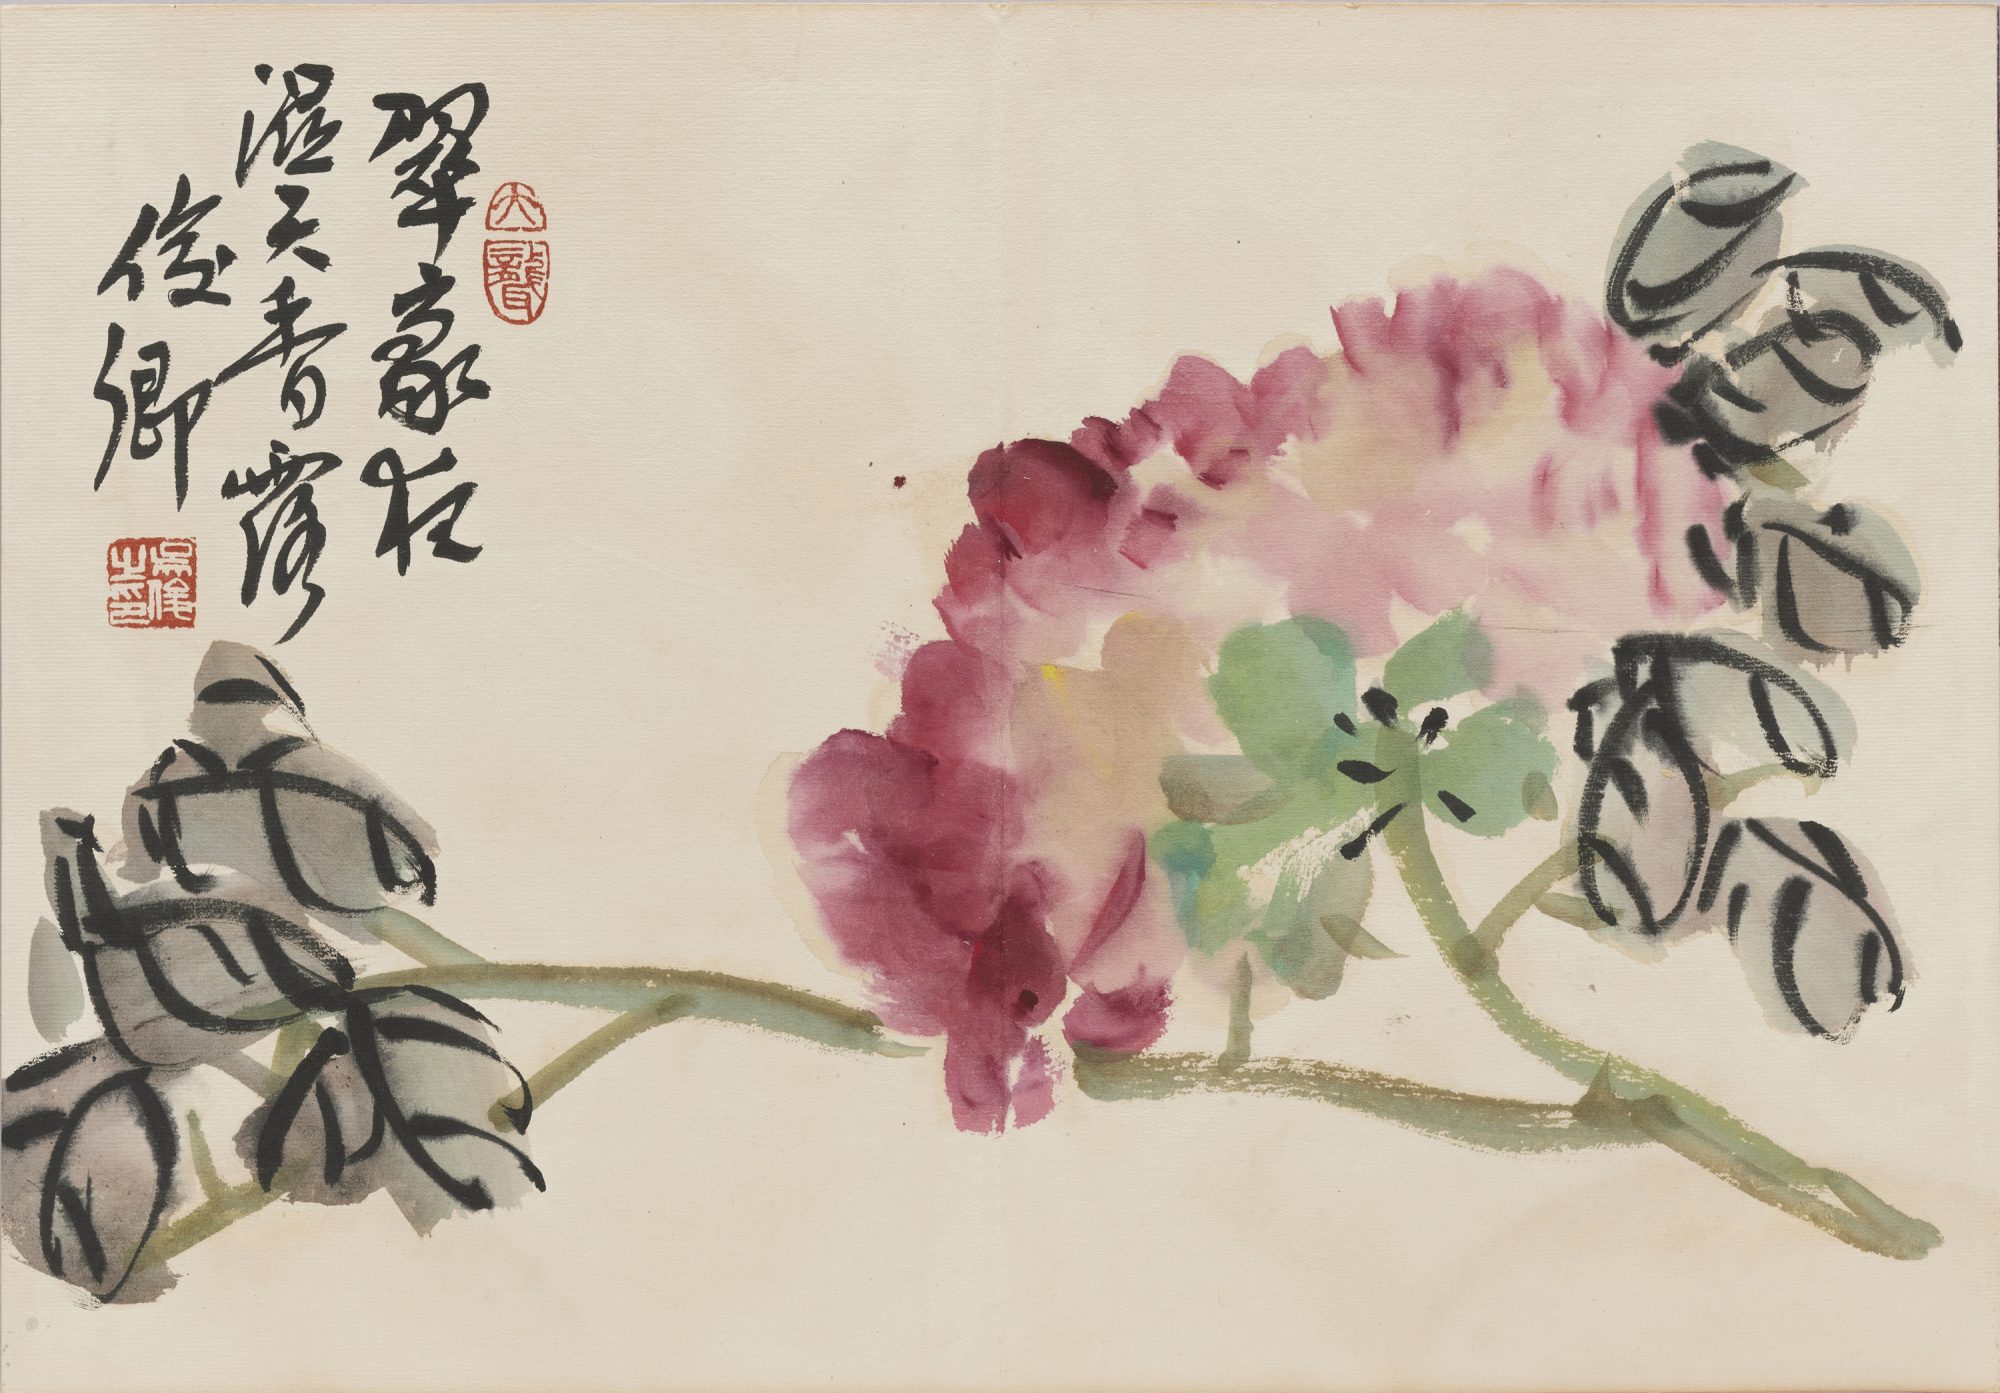 翠豪狂
湿天香露
俊卿
大聾
吳俊之印